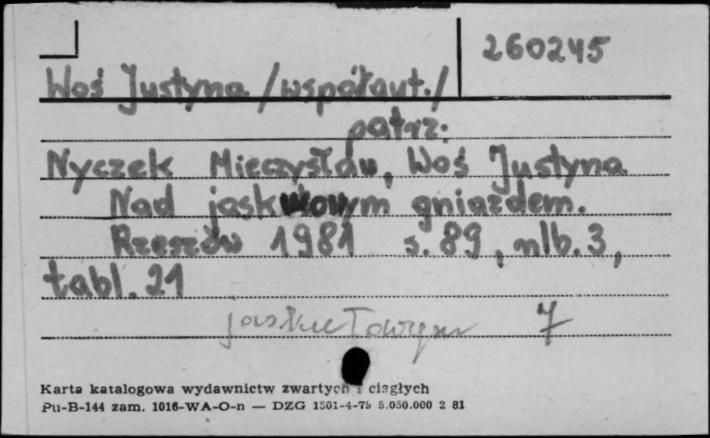 260245
Woś Justyna /współaut./
patrz:
Nyczek Mieczysław, Woś Justyna
Nad jaskółowym gniazdem.
Rzeszów 1981 s. 89, nlb. 3,
tabl. 21
jaskułowym 7
Karta katalogowa wydawnictw zwartych i ciągłych
Pu-B-144 zam. 1016-WA-O-n — DZG 1501-4-79 5.050.000 2 81